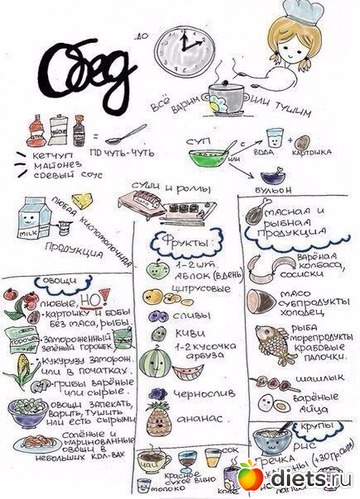 Обед
до
всё варим или тушим
кетчуп
майонез
соевый соус
по чуть-чуть
суп
с
вода
+
картошка
или
бульон
суши и роллы
MILK
любая кисломолочная
продукция
мясная и
рыбная
продукция
Фрукты:
1-2 шт.
яблок (в день)
цитрусовые
сливы
киви
1-2 кусочка
арбуза
чернослив
ананас
овощи
любые, НО!
- картошку и бобы
без мяса, рыбы.
горошек
замороженный
зелёный горошек
кукурузу заморож.
или в початках.
грибы варёные
или сырые.
овощи запекать,
варить, тушить
или есть сырыми
солёные и
маринованные
овощи в
небольших кол-вах
варёная
колбаса,
сосиски
мясо
субпродукты
холодец
рыба
морепродукты
крабовые
палочки.
шашлык
варёные
яйца
крупы
рис
гречка
чай
красное
сухое вино
молоко
кофе
сок
diets.ru